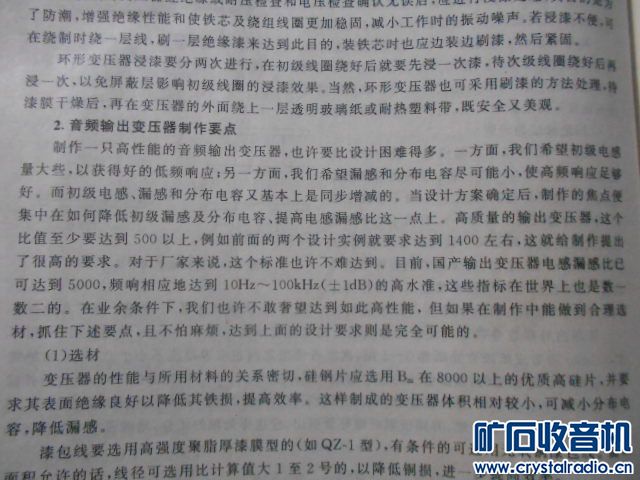 了防潮,增强绝缘性能和使铁芯及绕组线圈更加稳固,减小工作时的振动噪声。若浸漆不便,可
在绕制时绕一层线,刷一层绝缘漆来达到此目的,装铁芯时也应边装边刷漆,然后紧固。
环形变压器浸漆要分两次进行,在初级线圈绕好后就要先浸一次漆,待次级线圈绕好后再
浸一次,以免屏蔽层影响初级线圈的浸漆效果。当然,环形变压器也可采用刷漆的方法处理,待
漆膜干燥后,再在变压器的外面绕上一层透明玻璃纸或耐热塑料带,既安全又美观。
2. 音频输出变压器制作要点
制作一只高性能的音频输出变压器,也许要比设计困难得多。一方面,我们希望初级电感
量大些,以获得好的低频响应;另一方面,我们希望漏感和分布电容尽可能小,使高频响应足够
好。而初级电感、漏感和分布电容又基本上是同步增减的。当设计方案确定后,制作的焦点便
集中在如何降低初级漏感及分布电容、提高电感漏感比这一点上。高质量的输出变压器,这个
比值至少要达到 500 以上,例如前面的两个设计实例就要求达到 1400 左右,这就给制作提出
了很高的要求。对于厂家来说,这个标准也许不难达到。目前,国产输出变压器电感漏感比已
可达到 5000,频响相应地达到 10Hz~100kHz(±1dB)的高水准,这些指标在世界上也是数一
数二的。在业余条件下,我们也许不敢奢望达到如此高性能,但如果在制作中能做到合理选
材,抓住下述要点,且不怕麻烦,达到上面的设计要求则是完全可能的。
(1)选材
变压器的性能与所用材料的关系密切,硅钢片应选用 Bm 在 8000 以上的优质高硅片,并要
求其表面绝缘良好以降低其铁损,提高效率。这样制成的变压器体积相对较小,可减小分布电
容,降低漏感。
漆包线要选用高强度聚脂厚漆膜型的(如 QZ-1 型),有条件的可
面积允许的话,线径可选用比计算值大 1 至 2 号的,以降低铜损,进一
矿石收音机
www.crystalradio.cn